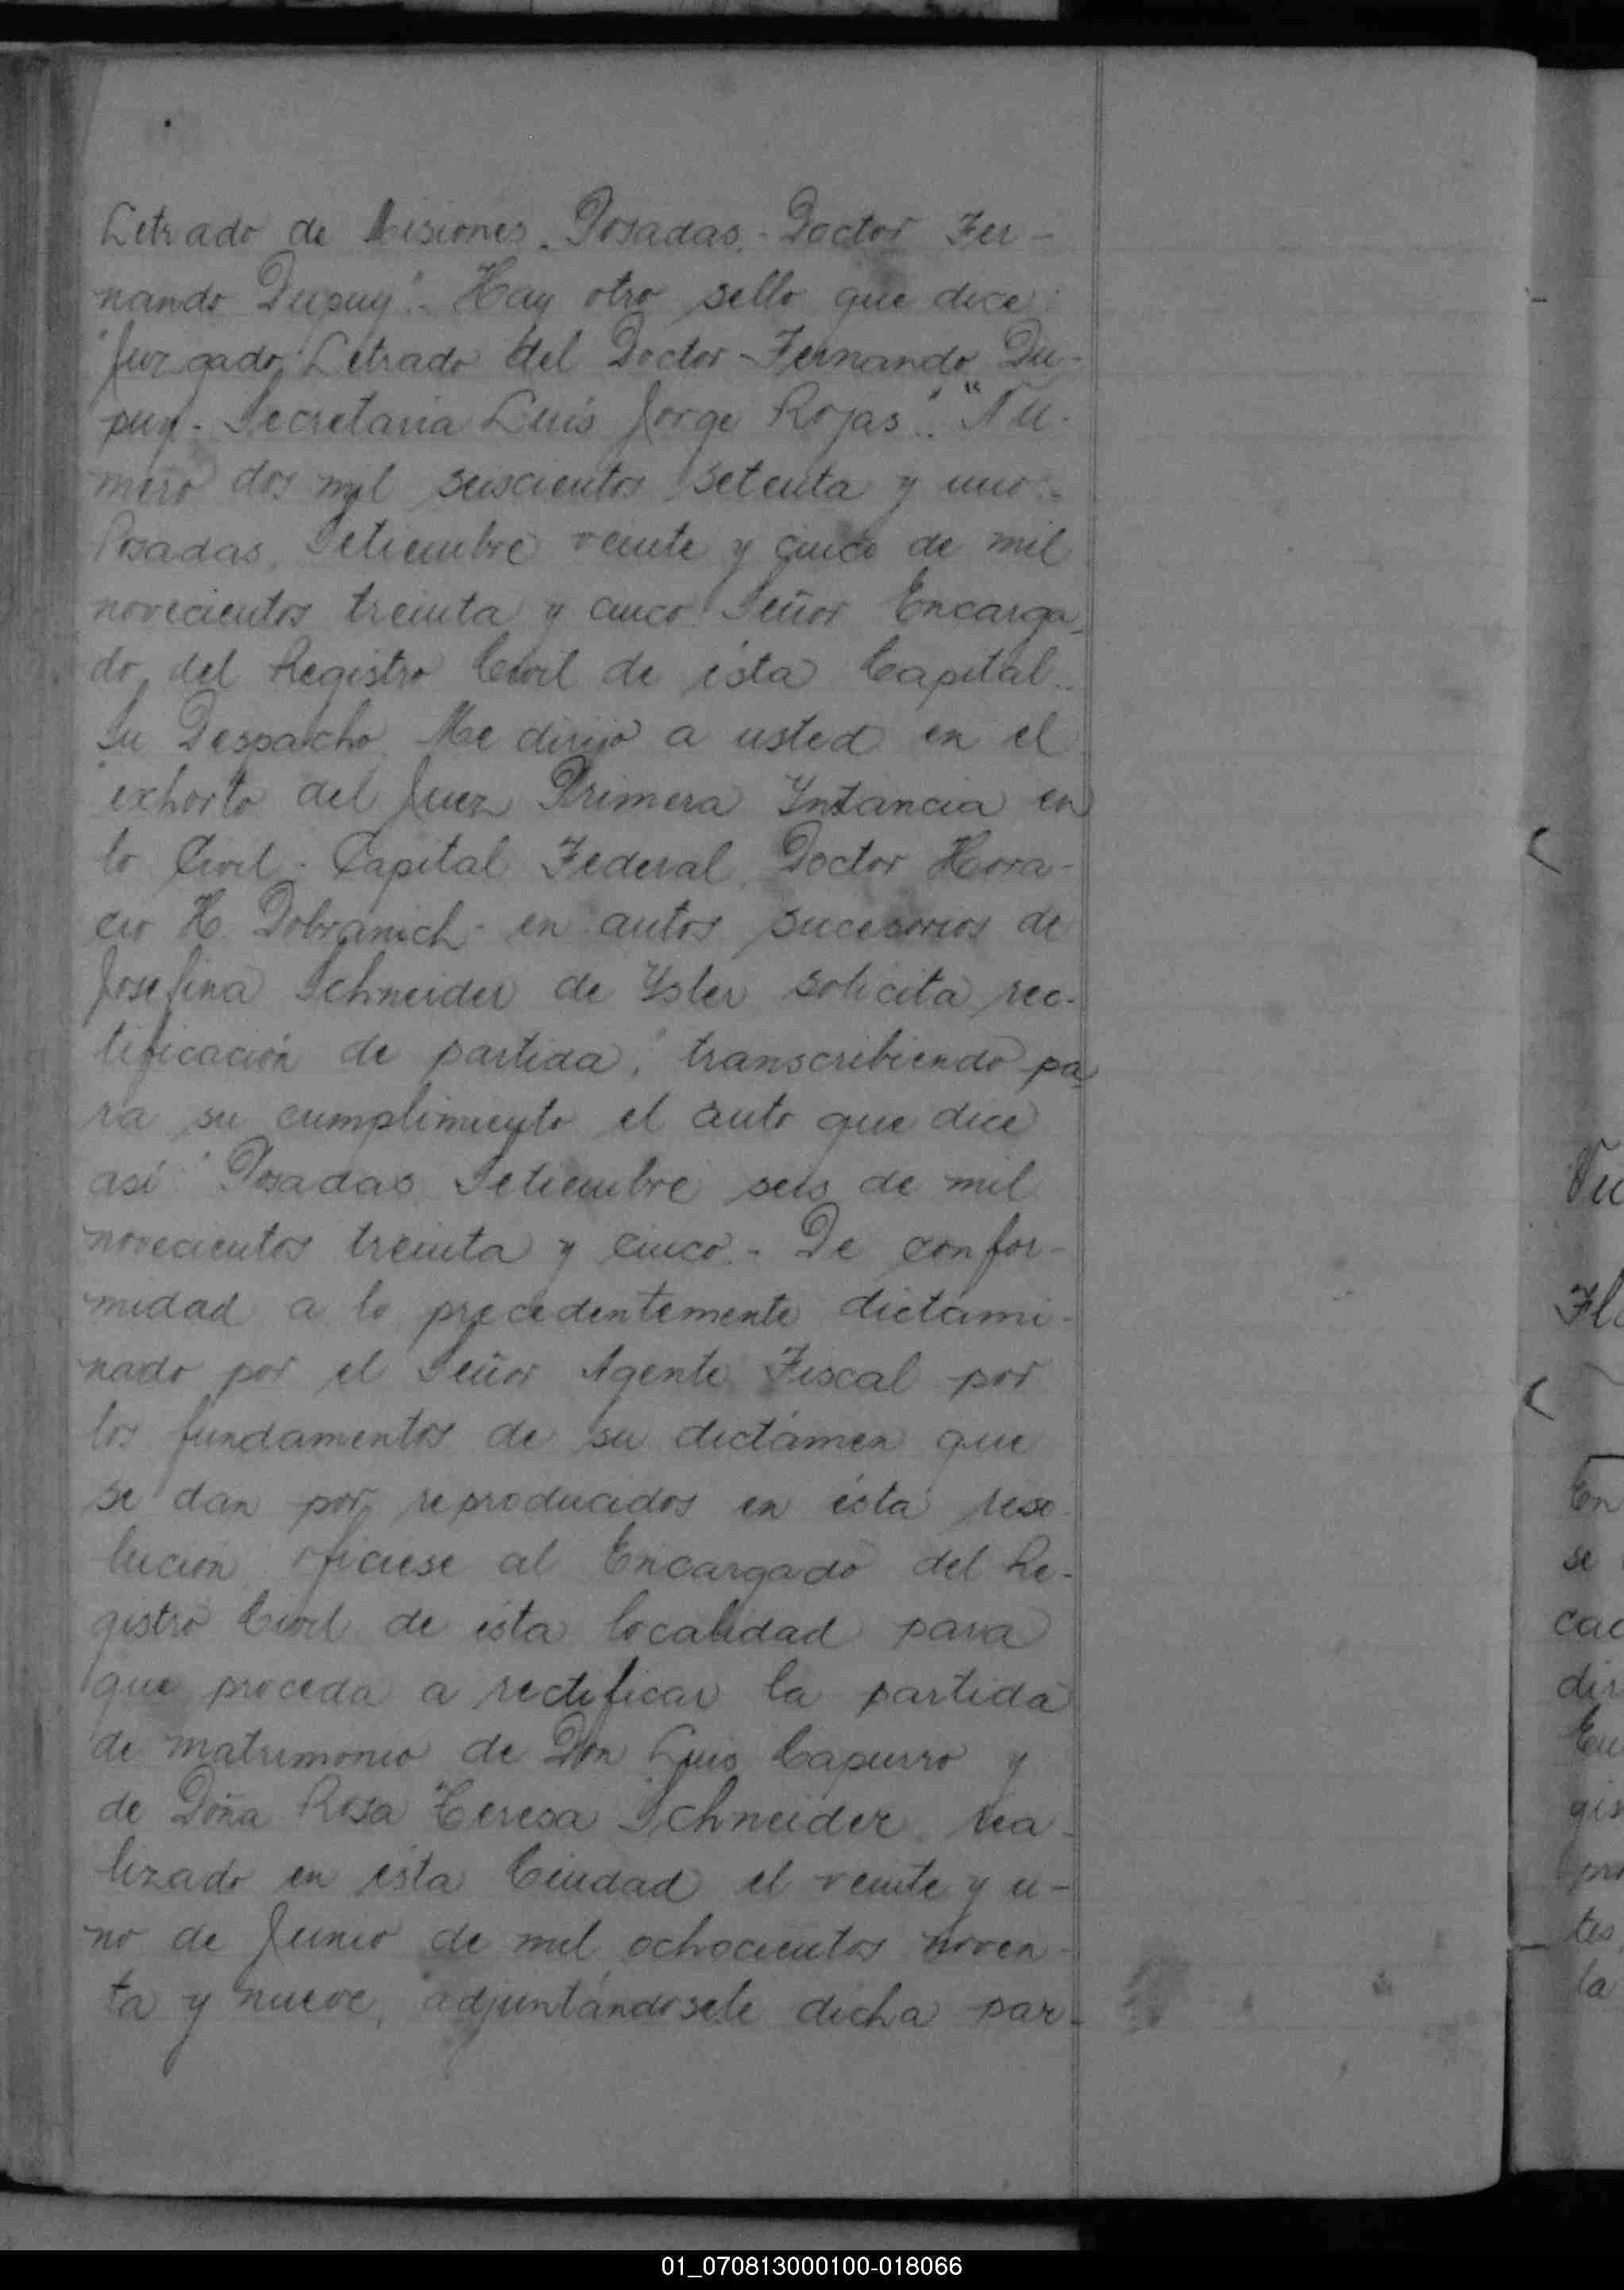 Letrado de Misiones. Posadas.- Doctor Fer-
nando Dupuy".- Hay otro sello que dice:
"Juzgado Letrado del Doctor Fernando Du-
puy - Secretaria Luis Jorge Rojas".. "Nú-
mero dos mil seiscientos setenta y uno.-
Posadas, Setiembre veinte y cinco de mil
novecientos treinta y cinco. Señor Encarga-
do del Registro Civil de ésta Capital..
Su Despacho. Me dirijo a usted en el
"exhorto del Juez Primera Yntancia en
lo Civil - Capital Federal, Doctor Hora-
cio H. Dobranich - en autos sucesorios de
Josefina Schneider de Ysler solicita rec-
tificación de partida," transcribiendo pa-
ra su cumplimiento el auto que dice
así "Posadas Setiembre seis de mil
novecientos treinta y cinco.- De confor-
midad a lo precedentemente dictami-
nado por el Señor Agente Fiscal por
los fundamentos de su dictámen que
se dan por reproducidos en ésta reso-
lución ofíciese al Encargado del Re-
gistro Civil de ésta localidad para
que proceda a rectificar la partida
de matrimonio de Don Luis Capurro y
de Doña Rosa Teresa Schneider, rea-
lizado en ésta Ciudad el veinte y u-
no de Junio de mil ochocientos noven-
ta y nueve, adjuntándosele dicha par-
En
se
la
01_070813000100-018066